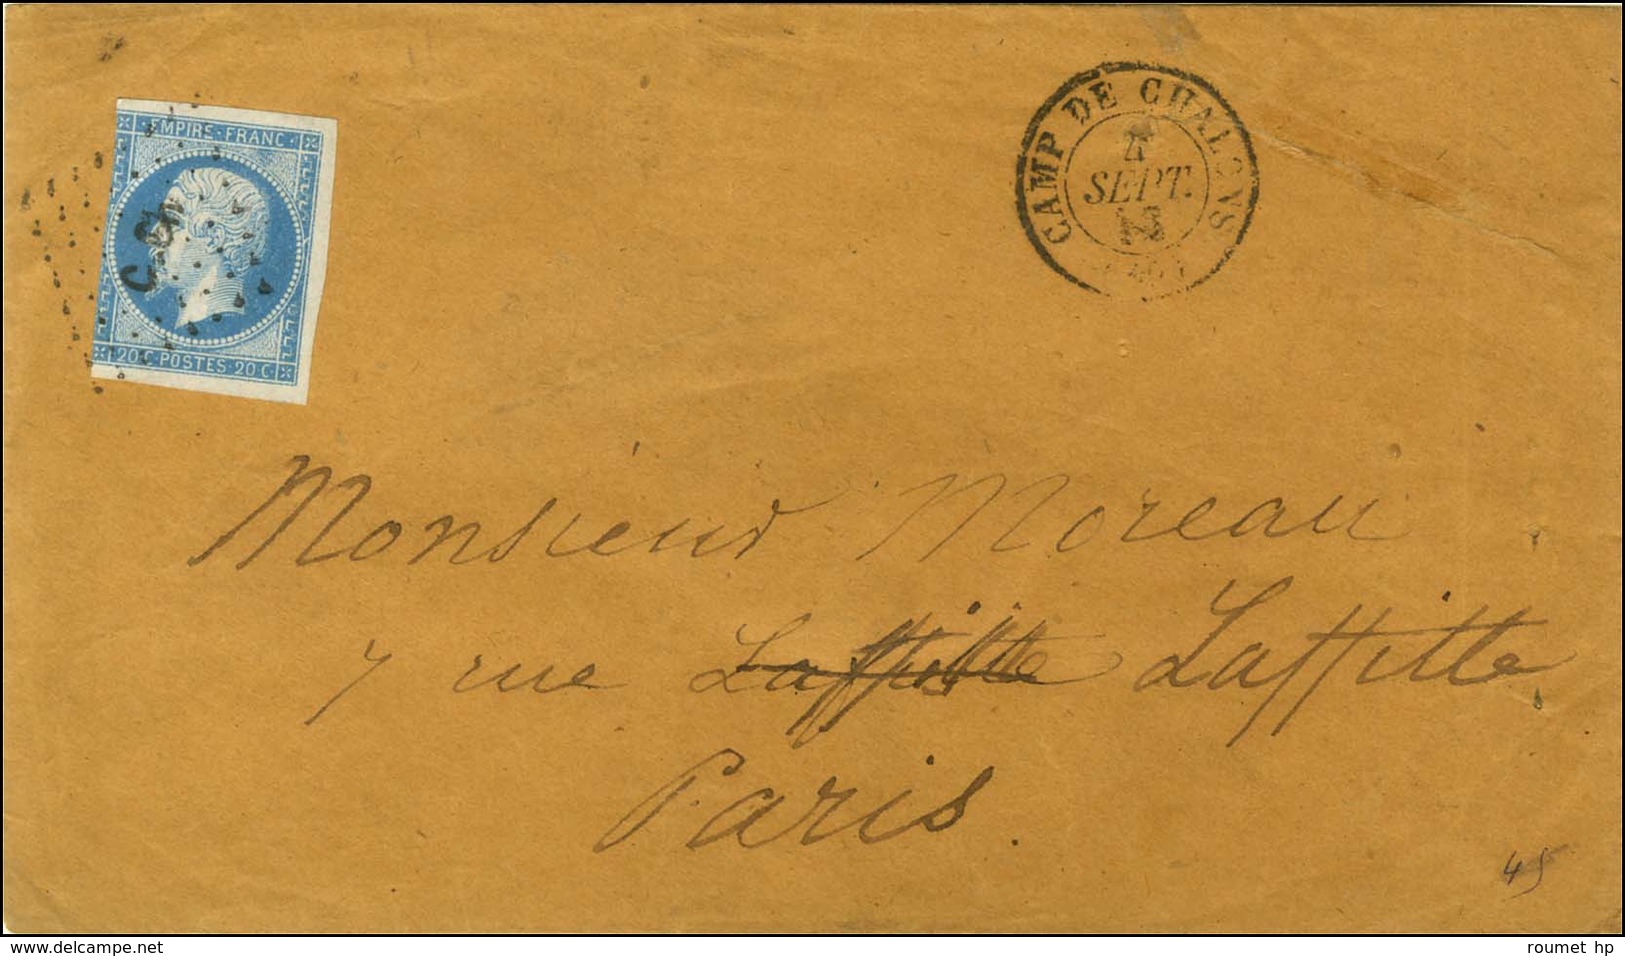 EMPIRE · FRANC ·
20 C · POSTES · 20 C ·
CAMP DE CHALONS
SEPT.
Monsieur Moreau
7 rue Laffitte Laffitte
Paris.
45
www.delcampe.net
roumet hp